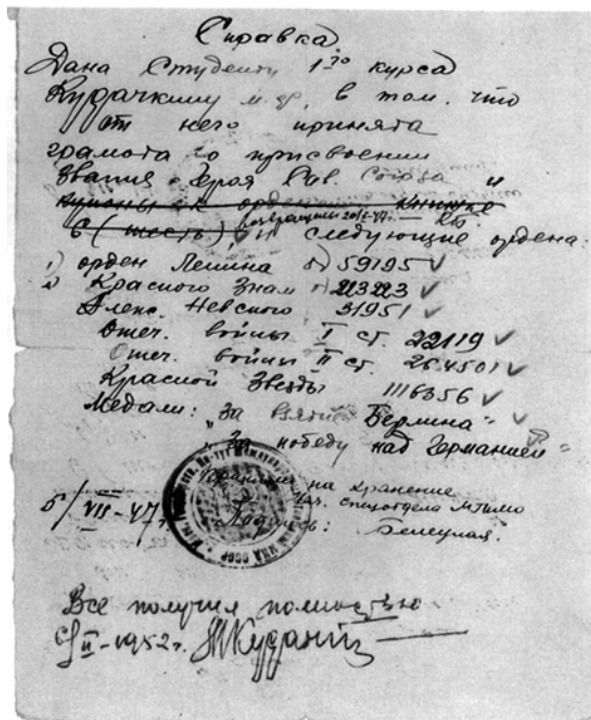 Справка
Дана Студенту 1го курса
Кудачкину м. ф, в том. что
от него принята
грамота о присвоении
звания "Героя Сов. Союза" и
купоны к орденской книжке
возвращены
6 (шесть) и следующие ордена:
1) орден Ленина № 59195
2) Красного Знам № 213223
Алекс. Невского 31951
Отеч. войны I ст. 22119
Отеч. войны II ст. 264501
Красной Звезды 1116356
Медали: "За взятие Берлина"
"За победу над Германией"
на хранение
Нач. спецотдела МГИМО
5/VII-47г. Подпись:
Все получил полностью
II-1952г.